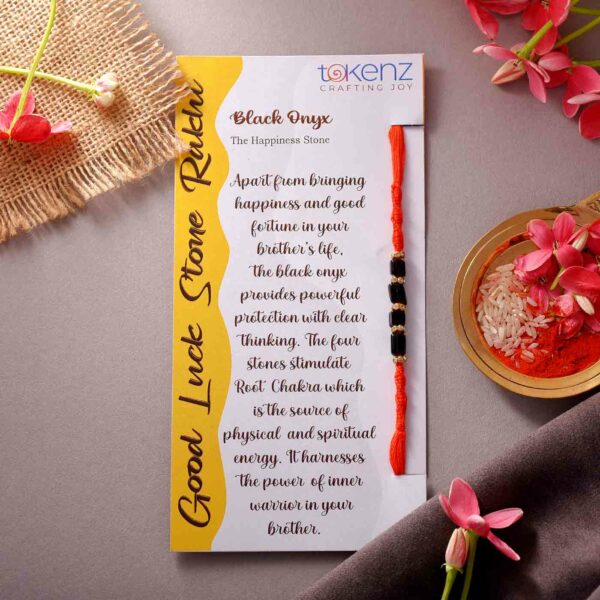 tokenz
CRAFTING JOY
Good Luck Stone Rakhi
Black Onyx
The Happiness Stone
Apart from bringing
happiness and good
fortune in your
brother's life,
the black onyx
provides powerful
protection with clear
thinking. The four
stones stimulate
Root Chakra which
is the source of
physical and spiritual
energy. It harnesses
the power of inner
warrior in your
brother.